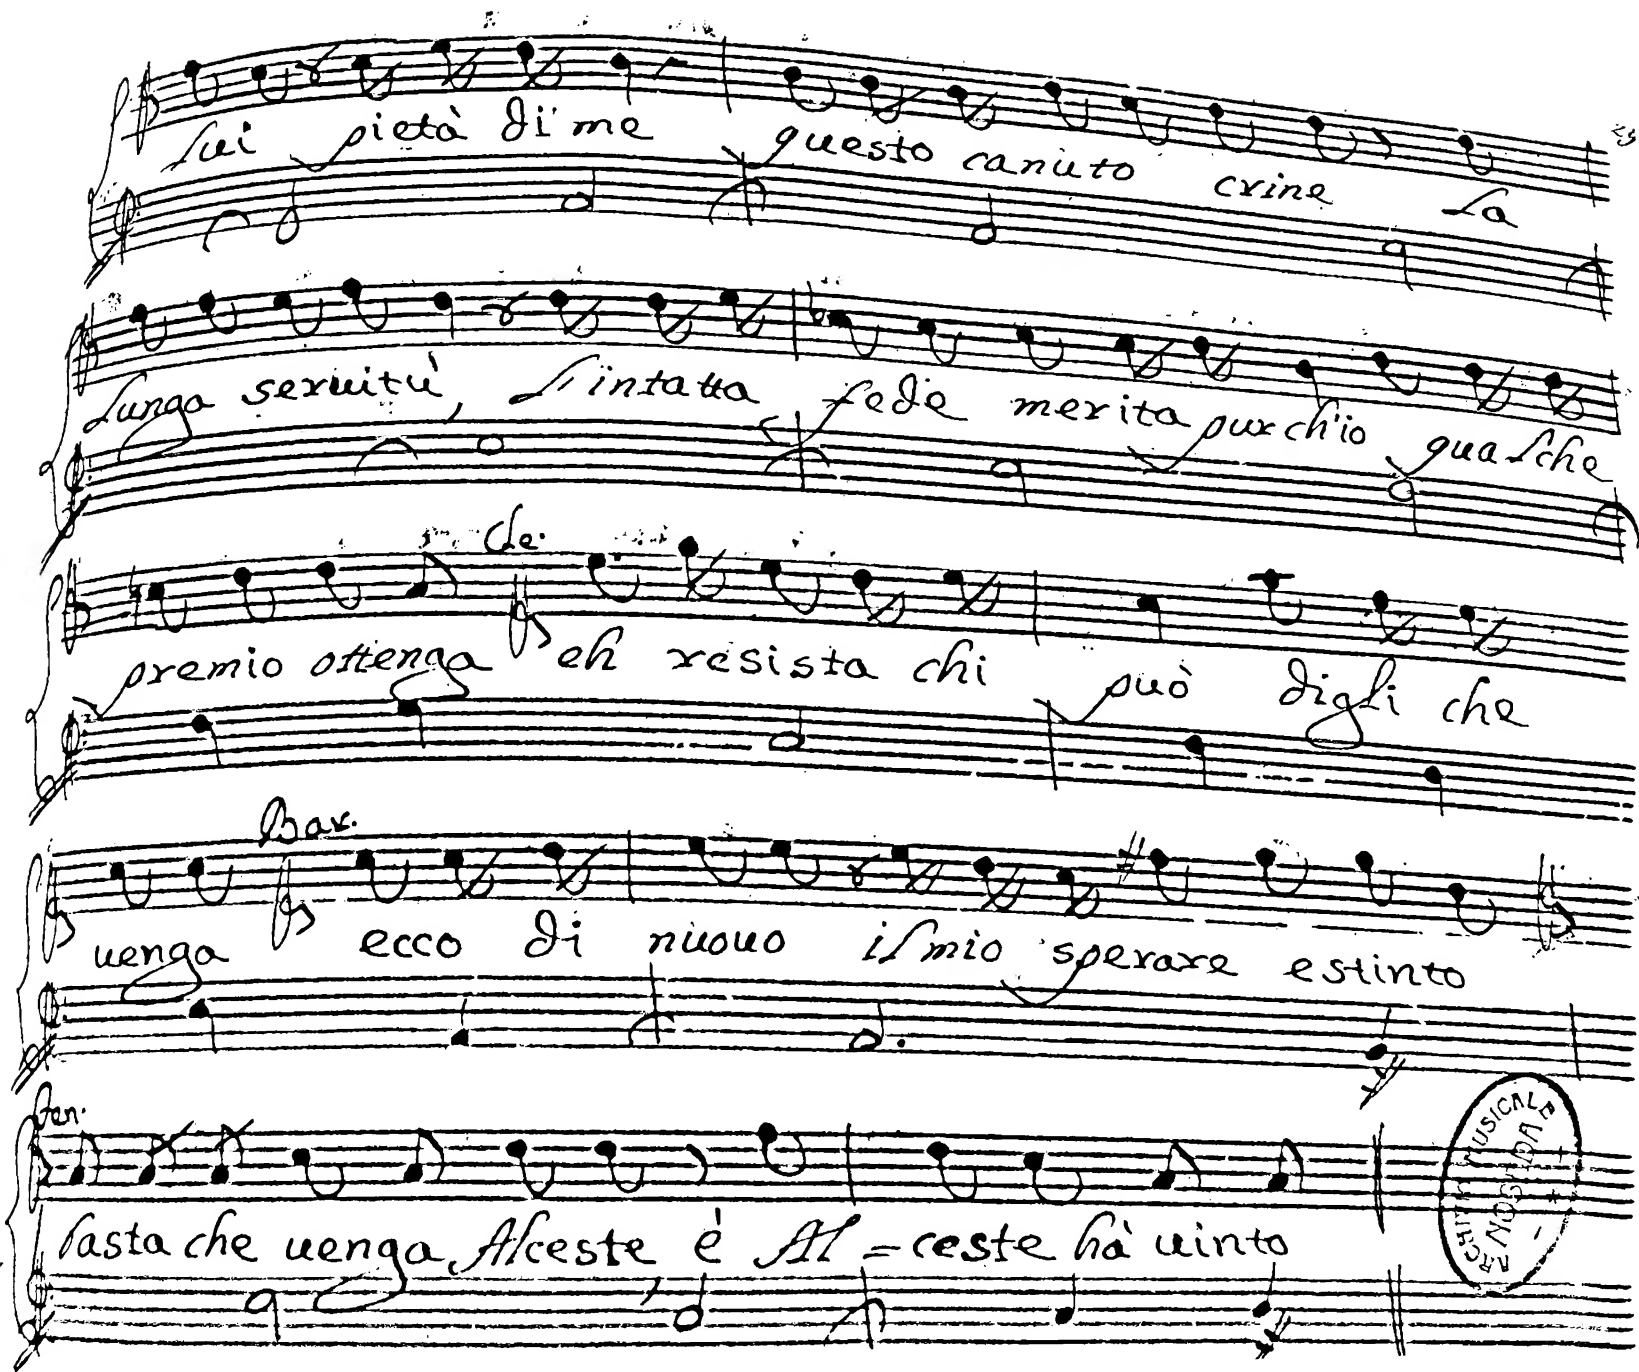 lui pietà di me questo canuto crine la
lunga seruitù, l'intatta fede merita pur ch'io qualche
Cle.
premio ottenga eh resista chi può digli che
Bar.
uenga ecco di nuouo il mio sperare estinto
Fen.
basta che uenga, Alceste è Al=ceste hà uinto
ARCHIVI MUSICALE NOSEDA